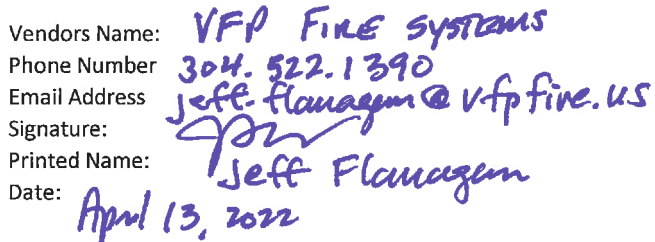 Vendors Name: VFP FIRE SYSTEMS
Phone Number 304.522.1390
Email Address jeff.flanagan@vfpfire.us
Signature:
Printed Name: Jeff Flanagan
Date: April 13, 2022